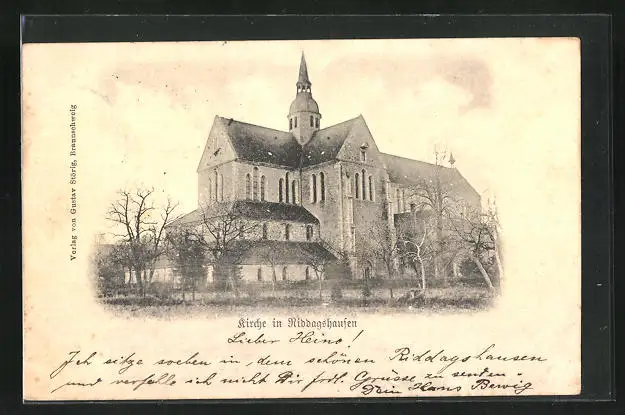 Verlag von Gustav Störig, Braunschweig
Kirche in Riddagshausen
Lieber Heino!
Ich sitze soeben in dem schönen Riddagshausen
und verfehle ich nicht Dir frdl. Grüsse zu senden
Dein Hans Bewig